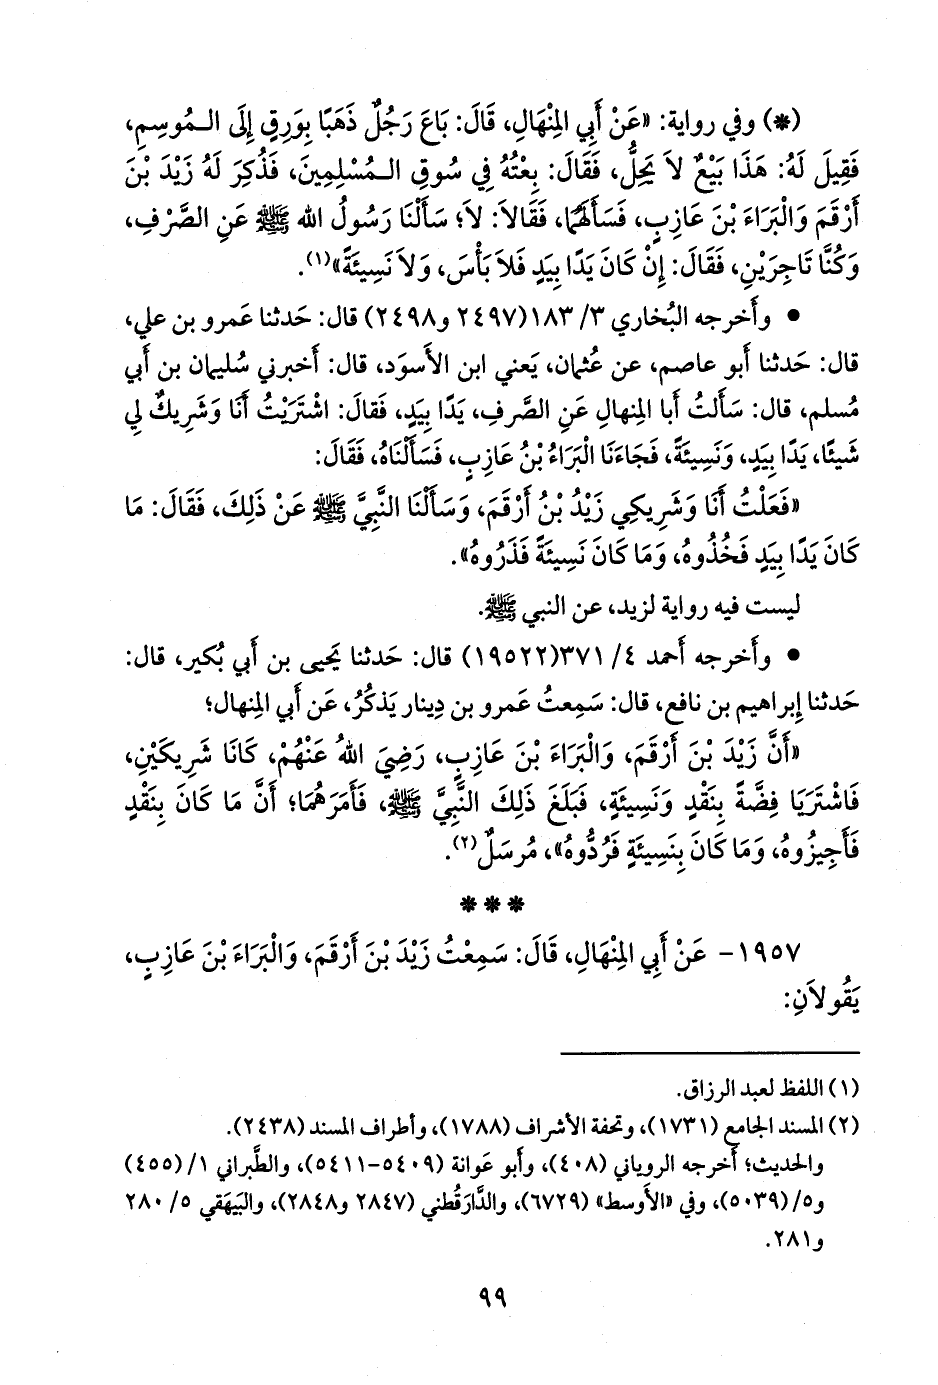 (*) وفي رواية: «عَنْ أَبِي المِنْهَالِ، قَالَ: بَاعَ رَجُلٌ ذَهَبًا بِوَرِقٍ إِلَى الـمُوسِمِ،
فَقِيلَ لَهُ: هَذَا بَيْعٌ لاَ يَحِلُّ، فَقَالَ: بِعْتُهُ فِي سُوقِ الـمُسْلِمِينَ، فَذُكِرَ لَهُ زَيْدَ بْنَ
أَرْقَمَ وَالْبَرَاءَ بْنَ عَازِبٍ، فَسَأَلَهُمَا، فَقَالاَ: لاَ؛ سَأَلْنَا رَسُولُ الله ﷺ عَنِ الصَّرْفِ،
وَكُنَّا تَاجِرَيْنِ، فَقَالَ: إِنْ كَانَ يَدًا بِيَدٍ فَلاَ بَأْسَ، وَلاَ نَسِيئَةً»(١).
• وأَخرجه البُخاري ٣/ ١٨٣(٢٤٩٧ و٢٤٩٨) قال: حَدثنا عَمرو بن علي،
قال: حَدثنا أَبو عاصم، عن عُثمان، يَعني ابن الأَسوَد، قال: أَخبرني سُليمان بن أَبي
مُسلم، قال: سَأَلتُ أَبا المِنهالِ عَنِ الصَّرفِ، يَدًا بِيَدٍ، فَقالَ: اشْتَرَيْتُ أَنَا وَشَرِيكٌ لِي
شَيئًا، يَدًا بِيَدٍ، وَنَسِيئَةً، فَجَاءَنَا الْبَرَاءُ بْنُ عَازِبٍ، فَسَأَلْنَاهُ، فَقَالَ:
«فَعَلْتُ أَنَا وَشَرِيكِي زَيْدُ بْنُ أَرْقَمَ، وَسَأَلْنَا النَّبِيَّ ﷺ عَنْ ذَلِكَ، فَقَالَ: مَا
كَانَ يَدًا بِيَدٍ فَخُذُوهُ، وَمَا كَانَ نَسِيئَةً فَذَرُوهُ».
ليست فيه رواية لزيد، عن النبي ﷺ.
• وأَخرجه أَحمد ٤/ ٣٧١(١٩٥٢٢) قال: حَدثنا يَحيى بن أَبي بُكير، قال:
حَدثنا إِبراهيم بن نافع، قال: سَمِعتُ عَمرو بن دِينار يَذكُرُ، عَن أَبي المِنهال؛
«أَنَّ زَيْدَ بْنَ أَرْقَمَ، وَالْبَرَاءَ بْنَ عَازِبٍ، رَضِيَ اللهُ عَنْهُمْ، كَانَا شَرِيكَيْنِ،
فَاشْتَرَيَا فِضَّةً بِنَقْدٍ وَنَسِيئَةٍ، فَبَلَغَ ذَلِكَ النَّبِيَّ ﷺ، فَأَمَرَهُمَا؛ أَنَّ مَا كَانَ بِنَقْدٍ
فَأَجِيزُوهُ، وَمَا كَانَ بِنَسِيئَةٍ فَرُدُّوهُ»، مُرسَلٌ(٢).
***
١٩٥٧- عَنْ أَبِي المِنْهَالِ، قَالَ: سَمِعْتُ زَيْدَ بْنَ أَرْقَمَ، وَالْبَرَاءَ بْنَ عَازِبٍ،
يَقُولاَنِ:
(١) اللفظ لعبد الرزاق.
(٢) المسند الجامع (١٧٣١)، وتحفة الأشراف (١٧٨٨)، وأطراف المسند (٢٤٣٨).
والحديث؛ أخرجه الروياني (٤٠٨)، وأبو عَوانة (٥٤٠٩-٥٤١١)، والطَّبراني ١/ (٤٥٥)
و٥/ (٥٠٣٩)، وفي «الأَوسط» (٦٧٢٩)، والدَّارَقُطني (٢٨٤٧ و٢٨٤٨)، والبَيهَقي ٥/ ٢٨٠
و٢٨١.
٩٩